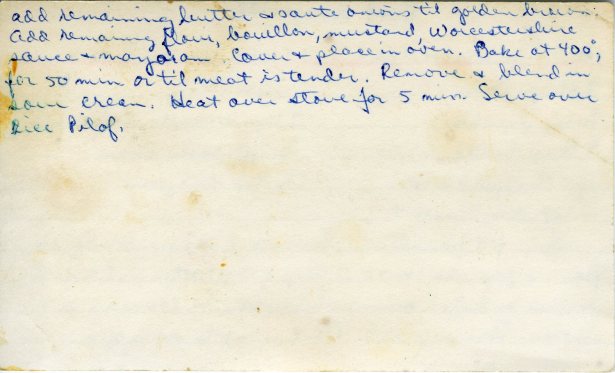 add remaining butter & saute onions til golden brown.
Add remaining flour, bouillon, mustard, Worcestershire
sauce & marjoram. Cover & place in oven. Bake at 400°,
for 50 min or til meat is tender. Remove & blend in
sour cream. Heat over stove for 5 min. Serve over
Rice Pilaf.